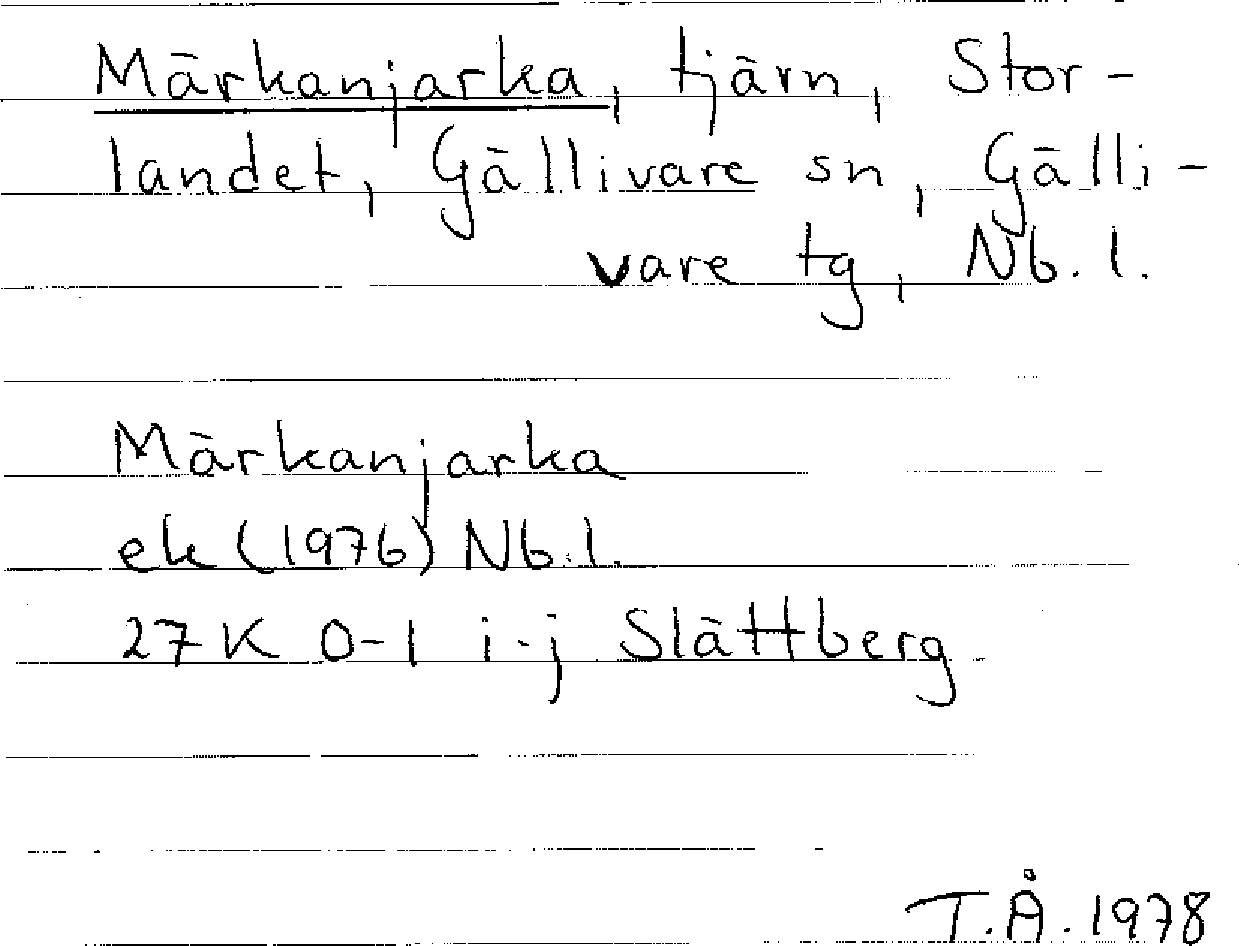 Märkanjarka, tjärn, Stor-
landet, Gällivare sn, Gälli-
vare tg, Nb. l.
Märkanjarka
ek (1976) Nb. l.
27K 0-1 i-j Slättberg
T.Å. 1978